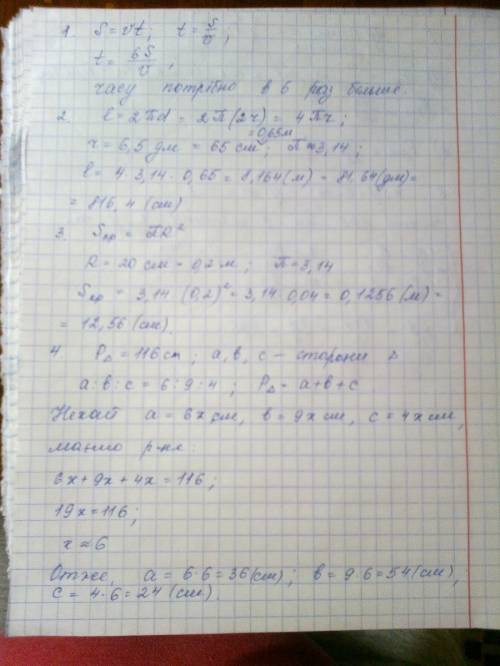 1. S = vt; t = S/v;
t = 6S/v;
часу потрібно в 6 раз больше.
2. l = 2πd = 2π(2r) = 4πr;
r = 6,5 дм = 65 см = 0,65м; π≈3,14;
l = 4·3,14·0,65 = 8,164(м) = 81,64(дм)=
= 816,4 (см)
3. Sкр = πR²
R = 20 см = 0,2 м; π=3,14
Sкр = 3,14·(0,2)² = 3,14·0,04 = 0,1256 (м) =
= 12,56 (см).
4. P△ = 116 см; a, b, c – сторони △
a:b:c = 6:9:4; P△ = a+b+c
Нехай a = 6x см, b = 9x см, c = 4x см,
маємо р-ня:
6x+9x+4x = 116;
19x=116;
x ≈ 6
Отже, a = 6·6=36(см); b = 9·6=54(см),
c = 4·6=24 (см).